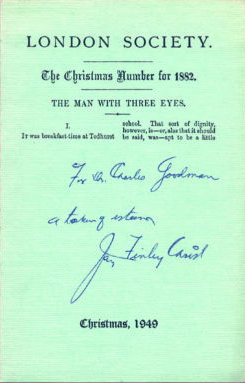 LONDON SOCIETY.
The Christmas Number for 1882.
THE MAN WITH THREE EYES.
I.
It was breakfast-time at Tedhurst
school. That sort of dignity,
however, is—or, else that it should
be said, was—apt to be a little
For Dr. Charles Goodman
a token of esteem
Jay Finley Christ
Christmas, 1949